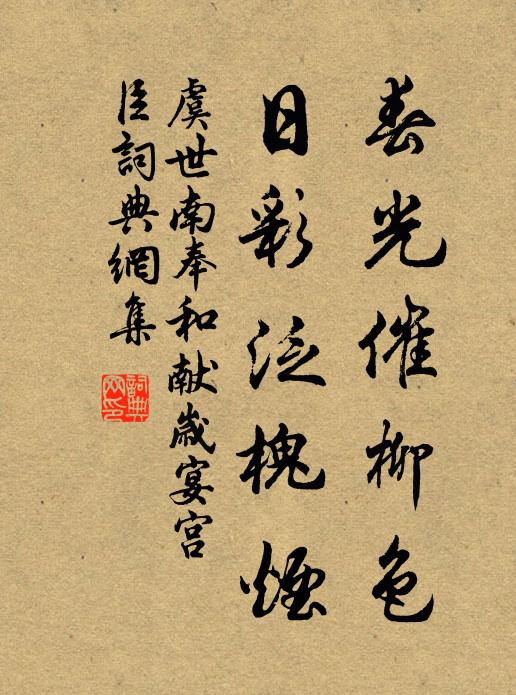 春光催柳色
日彩泛槐煙
虞世南奉和献歲宴宫
臣詞典網集
詞典網印